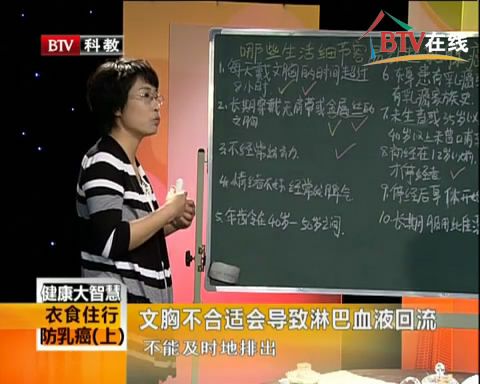 BTV 科教
BTV在线
哪些生活细节容易
1.每天戴文胸的时间超过
8小时
2.长期穿戴无肩带或金属丝的
文胸
3.不经常运动
4.情绪不好 经常发脾气
5.年龄在40岁—50岁之间
6.
有乳癌家族史
7.未生育或35岁以
40岁以上未曾哺
8.初经在12岁以前
才停经者
9.停经后
10.长期服用
健康大智慧
衣食住行
防乳癌(上)
文胸不合适会导致淋巴血液回流
不能及时地排出